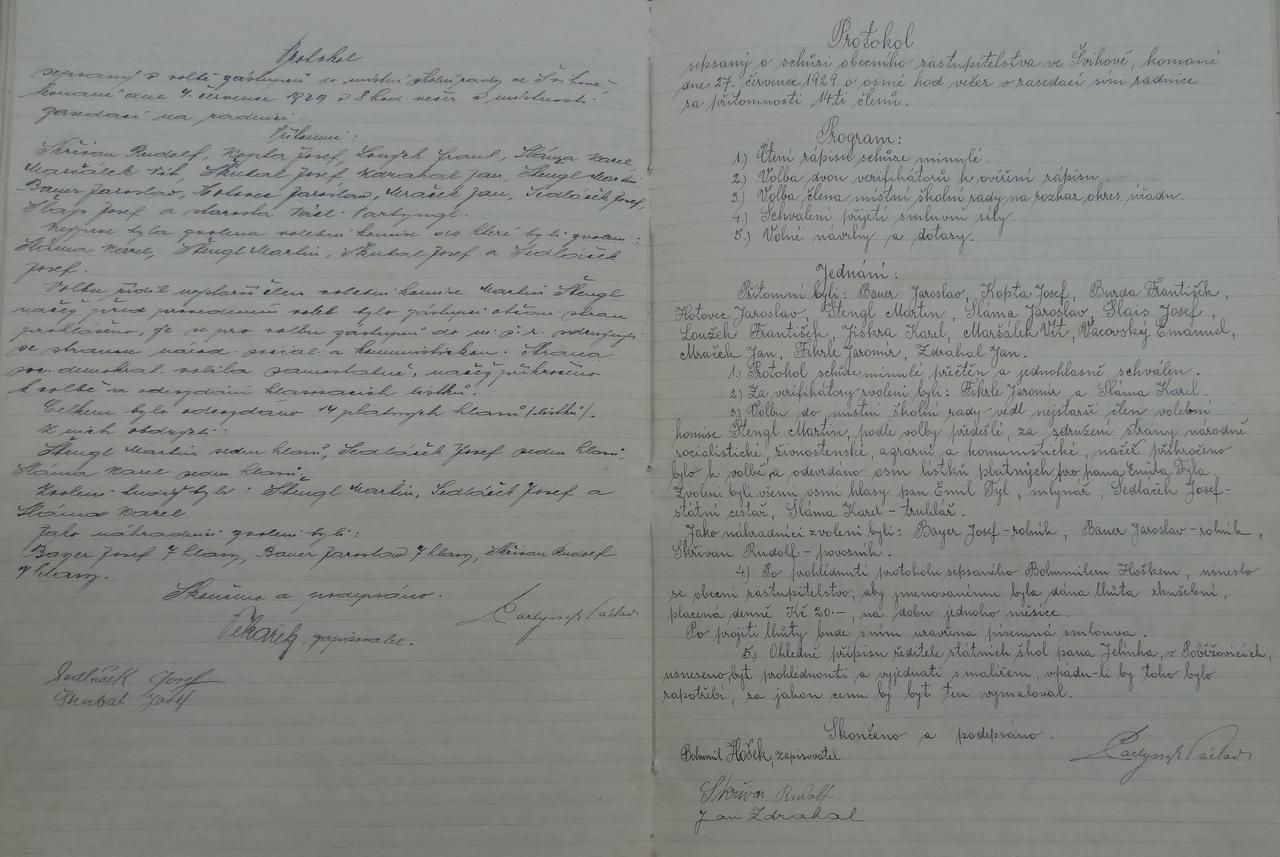 Protokol
sepsaný o volbě zástupců do místní školní rady ve Švihově,
konané dne 4. července 1929 o 8 hod. večer v místnosti
zasedací na radnici.
Přítomni:
Skřivan Rudolf, Kopta Josef, Loužek Frant., Sláma Karel,
Maršálek Vít, Skubal Josef, Zdrahal Jan, Štengl Martin,
Bauer Jaroslav, Hotovec Jaroslav, Mraček Jan, Sedláček Josef,
Šlajs Josef a starosta Václ. Partyngl.
Nejprve byla zvolena volební komise do které byli zvoleni:
Sláma Karel, Štengl Martin, Skubal Josef a Sedláček
Josef.
Volbu řídil nejstarší člen volební komise Martin Štengl
načež před provedením voleb bylo zástupci stran
prohlášeno, že se pro volbu zástupců do m. š. r. sdružují
se stranou národ. social. a komunistickou. Strana
soc. demokrat. volila samostatně, načež přikročeno
k volbě a odevzdání hlasovacích lístků.
Celkem bylo odevzdáno 14 platných hlasů /lístků/.
Z nich obdrželi:
Štengl Martin sedm hlasů, Sedláček Josef sedm hlasů,
Sláma Karel sedm hlasů.
Zvoleni byli: Štengl Martin, Sedláček Josef a
Sláma Karel
Jako náhradníci zvoleni byli:
Bayer Josef 7 hlasy, Bauer Jaroslav 7 hlasy, Skřivan Rudolf
7 hlasy.
Skončeno a podepsáno.
Partyngl Václav
Pekárek, zapisovatel.
Sedláček Josef
Skubal Josef
Protokol
sepsaný o schůzi obecního zastupitelstva ve Švihově, konané
dne 27. července 1929 o osmé hod večer v zasedací síni radnice
za přítomnosti 14ti členů.
Program:
1.) Čtení zápisu schůze minulé.
2.) Volba dvou verifikátorů k ověření zápisu.
3.) Volba člena místní školní rady na rozkaz okres. úřadu.
4.) Schválení přijetí smluvní síly.
5.) Volné návrhy a dotazy.
Jednání:
Přítomni byli: Bauer Jaroslav, Kopta Josef, Burda František,
Hotovec Jaroslav, Štengl Martin, Sláma Jaroslav, Šlais Josef,
Loužek František, Jiskra Karel, Maršálek Vít, Vacovský Emanuel,
Mraček Jan, Fikrle Jaromír, Zdrahal Jan.
1.) Protokol schůze minulé přečten a jednohlasně schválen.
2.) Za verifikátory zvoleni byli: Fikrle Jaromír a Sláma Karel.
3.) Volbu do místní školní rady vedl nejstarší člen volební
komise Štengl Martin, podle volby předešlé, za sdružení strany národně
socialistické, živnostenské, agrární a komunistické, načež přikročeno
bylo k volbě, a odevzdáno osm lístků platných pro pana Emila Týla.
Zvoleni byli všemi osmi hlasy pan Emil Týl, mlynář, Sedláček Josef-
státní cestář, Sláma Karel - truhlář.
Jako náhradníci zvoleni byli: Bayer Josef - rolník, Bauer Jaroslav - rolník,
Skřivan Rudolf - povozník.
4) Po prohlédnutí protokolu sepsaného Bohumilem Hoškem, usneslo
se obecní zastupitelstvo, aby jmenovanému byla dána lhůta zkušební,
placená denně Kč 20.-, na dobu jednoho měsíce.
Po projití lhůty bude s ním uzavřena písemná smlouva.
5.) Ohledně přípisu ředitele státních škol pana Jelínka, v Poběžovicích,
usneseno, byt prohlédnouti a vyjednati s malířem, vpádu-li by toho bylo
zapotřebí, za jakou cenu by byt ten vymaloval.
Skončeno a podepsáno.
Bohumil Hošek, zapisovatel
Partyngl Václav
Skřivan Rudolf
Jan Zdrahal